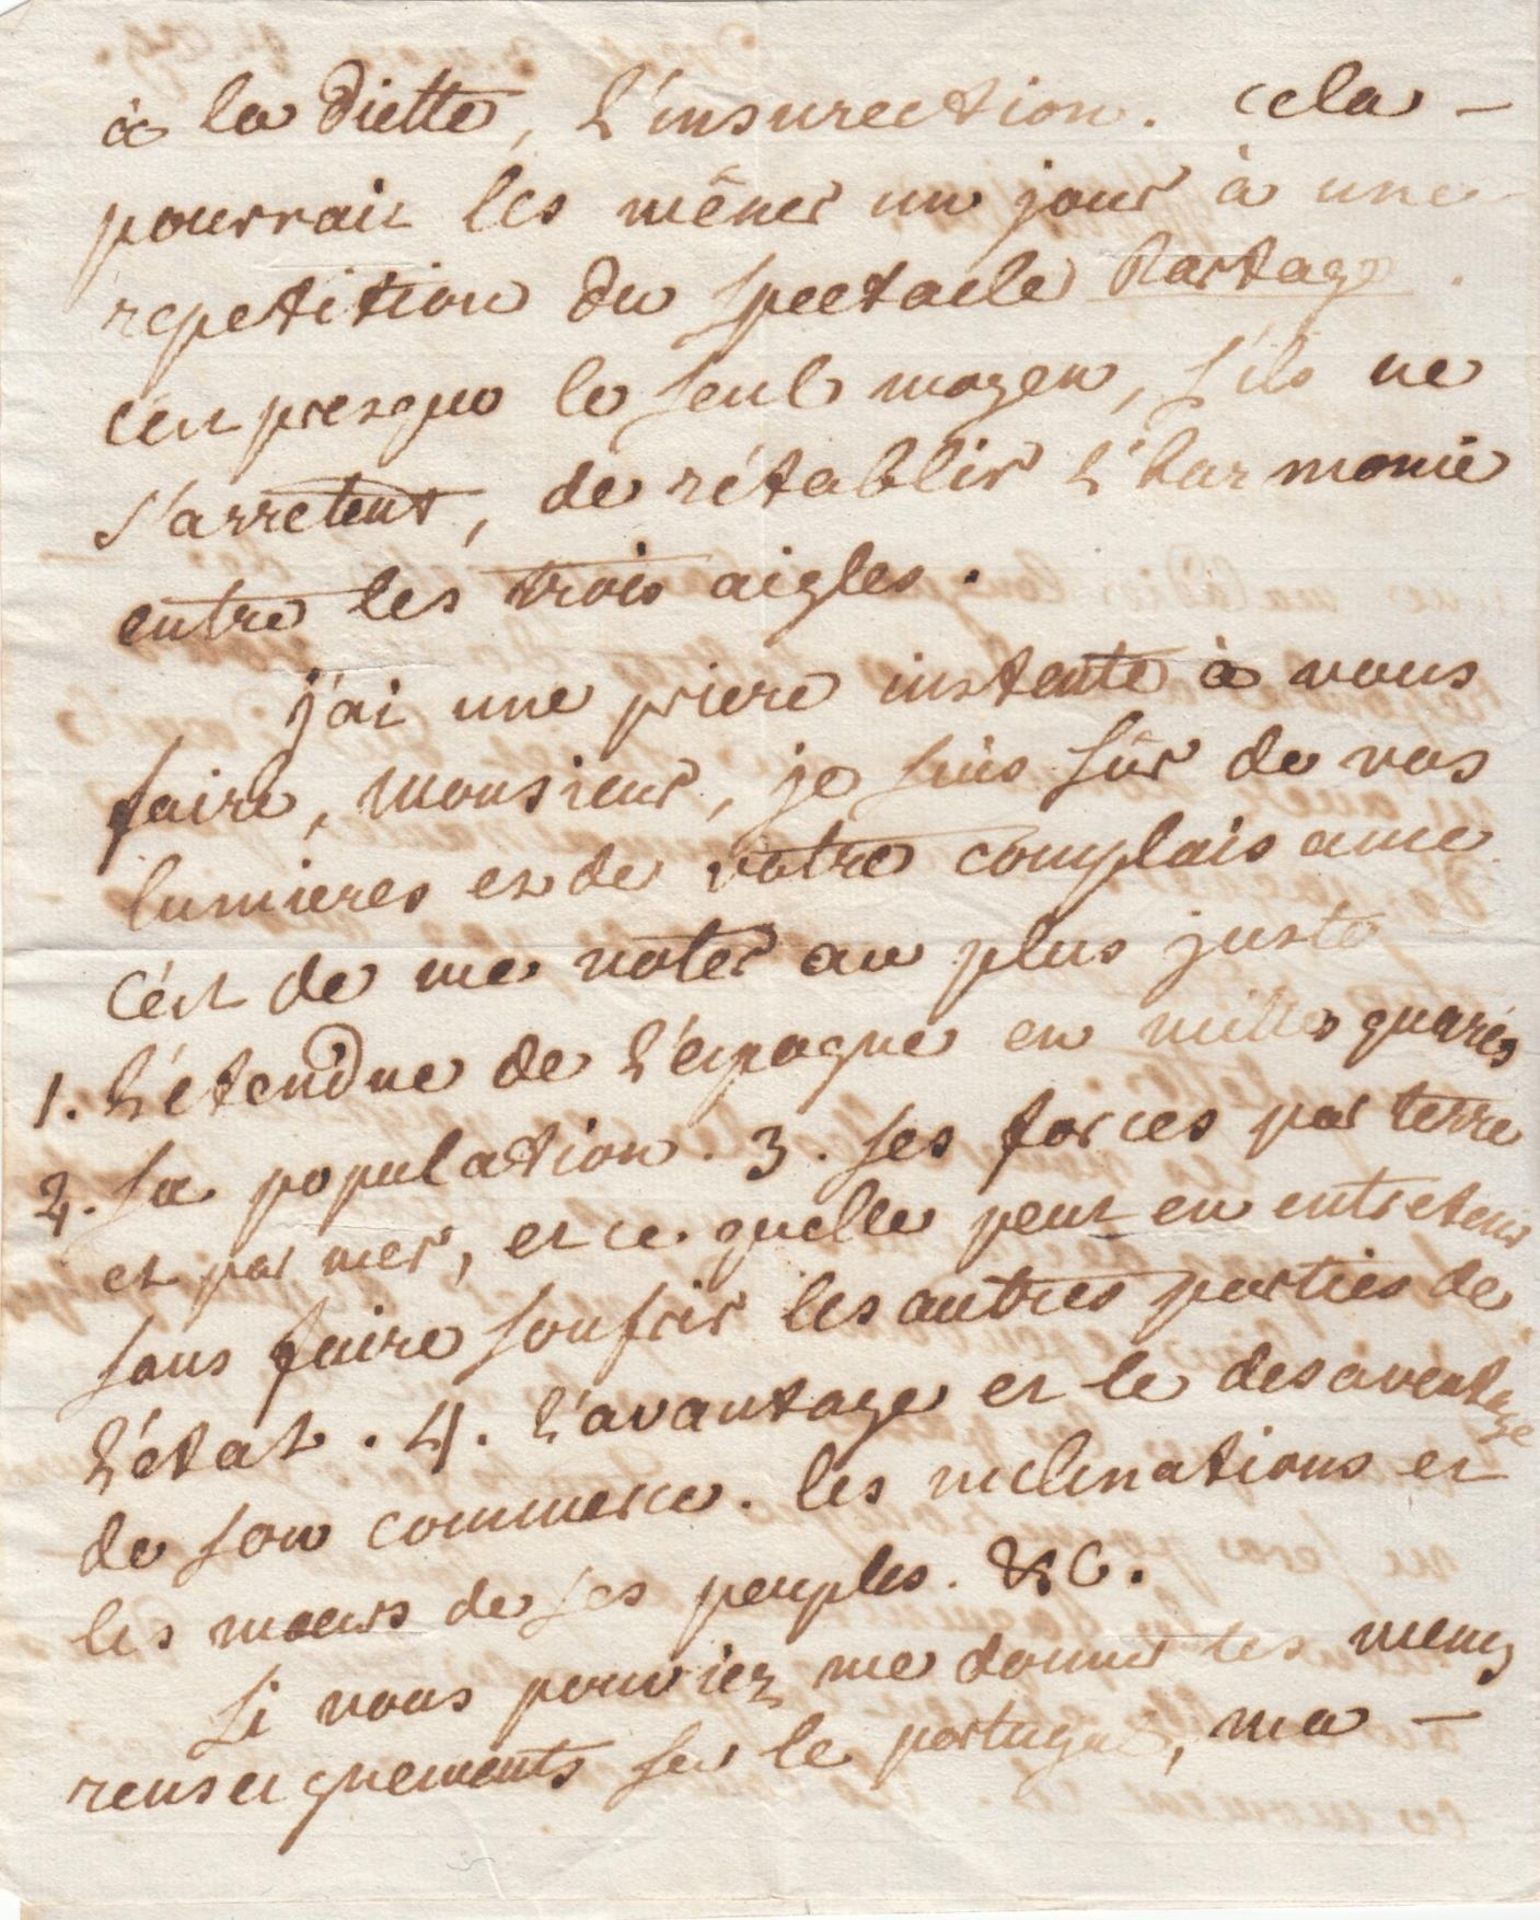 à la diette, l'insurection. cela –
pourrait les mêner un jour à une
repetition du spectacle Partage.
c'ést presque le seul moyen, s'ils ne
s'arretent, de rétablir l'harmonie
entre les trois aigles.
j'ai une priere instente à vous
faire, monsieur, je suis sûr de vos
lumieres et de votre complaisance
c'ést de me noter au plus juste
1. L'etendue de l'espagne en milles quarés
2. sa population. 3. ses forces par terre
et par mer, et ce quelle peut en entretenir
sans faire soufrir les autres parties de
l'état. 4. l'avantage et le desaventage
de son commerce. les inclinations et
les moeurs de ses peuples. &c.
Si vous pouviez me donner les memes
renseignements sur le portugal, ma –